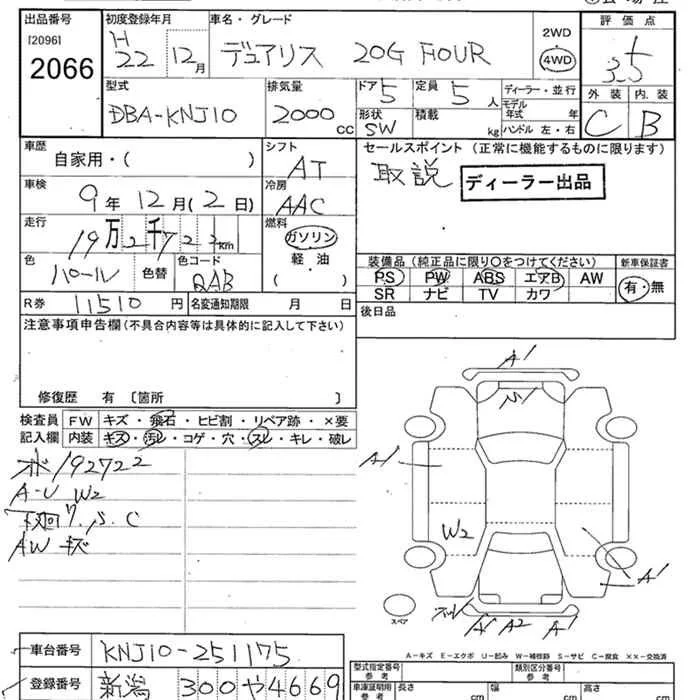 出品番号
[2096]
2066
初度登録年月
H
22 12月
車名・グレード
デュアリス 20G FOUR
2WD
4WD
評価点
3.5
外装 内装
C B
型式
DBA-KNJ10
排気量
2000 cc
ドア 5
形状
SW
定員
5 人
積載
kg
ディーラー・並行
モデル
年式 年
ハンドル 左・右
車歴
自家用・( )
シフト
AT
車検
9年 12月(2日)
冷房
AAC
走行
19万2千722km
燃料
ガソリン
軽・油
( )
色
パール
色替
色コード
QAB
R券 11510 円
名変通知期限 月 日
セールスポイント (正常に機能するものに限ります)
取説 ディーラー出品
装備品(純正品に限り○をつけてください)
PS PW ABS エアB AW
SR ナビ TV カワ
新車保証書
有・無
後日品
注意事項申告欄(不具合内容等は具体的に記入して下さい)
修復歴 有 〔箇所 〕
検査員
記入欄
FW キズ・飛石・ヒビ割・リペア跡・×要
内装 キズ・汚レ・コゲ・穴・スレ・キレ・破レ
192722
A-U W2
下廻
C
AW キズ
A1
A1
W2
A1
スペア
A1 A2 A1
A-キズ E-エクボ U-凹み W-補修跡 S-サビ C-腐食 ××-交換済
車台番号 KNJ10-251175
登録番号 新潟 300 や 4669
型式指定番号
参考
類別区分番号
参考
車庫証明用
参考
長さ cm
幅 cm
高さ cm